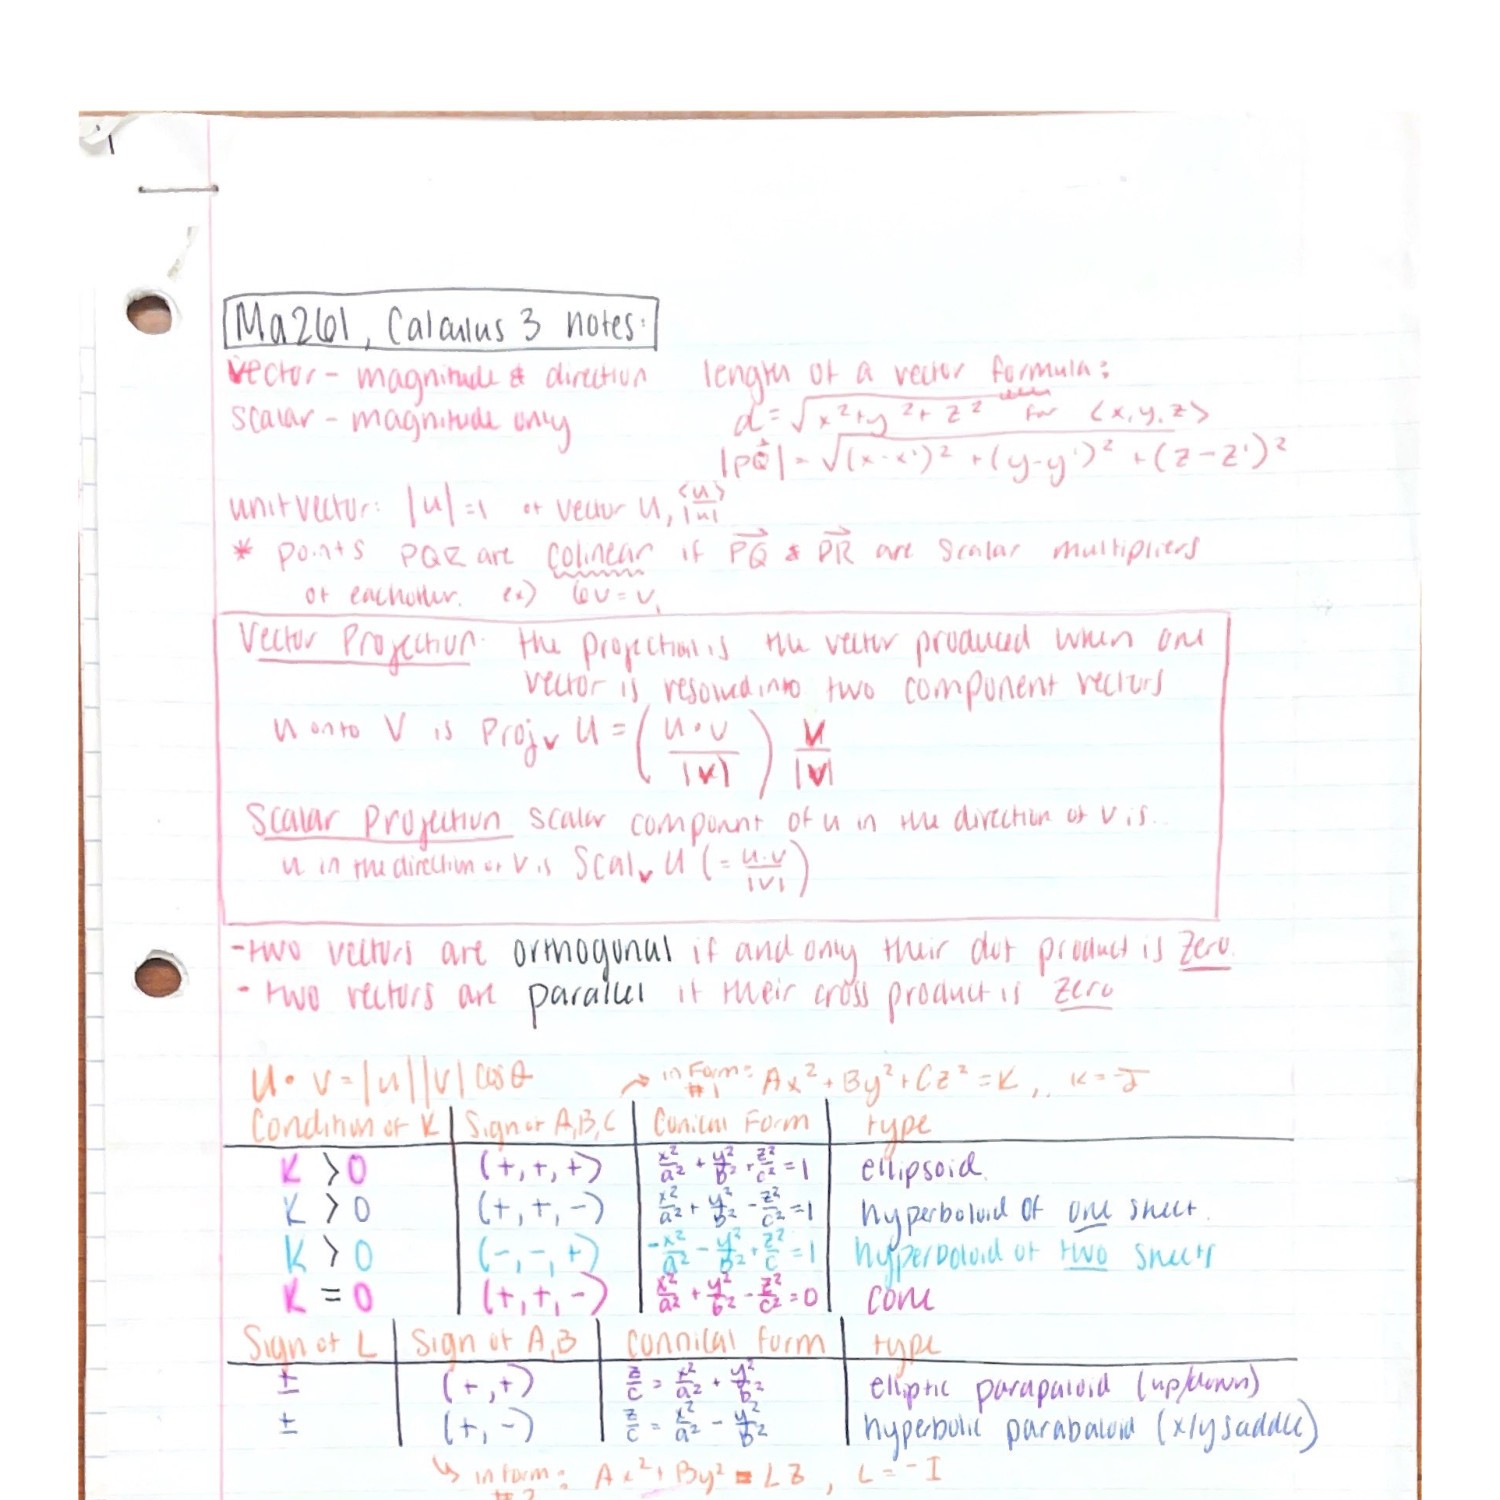 Ma261, Calculus 3 notes:
vector - magnitude & direction
scalar - magnitude only
length of a vector formula:
d = √x²+y²+z² for ⟨x,y,z⟩
|PQ⃗| = √(x-x')² + (y-y')² + (z-z')²
unit vector: |u|=1 of vector u, ⟨u⟩/|u|
* points PQR are colinear if PQ⃗ & PR⃗ are scalar multipliers
of eachother. ex) 6v = v,
Vector Projection: the projection is the vector produced when one
vector is resolved into two component vectors
u onto V is Projᵥ u = (u·v/|v|) v/|v|
Scalar Projection scalar component of u in the direction of v is..
u in the direction of v is Scalᵥ u (= u·v/|v|)
- two vectors are orthogonal if and only their dot product is zero.
- two vectors are parallel if their cross product is zero
u · v = |u||v| cos θ
→ in Form: #1 Ax²+By²+Cz² = K, K = -J
Condition of K | Sign of A,B,C | Conical Form | type
K > 0 | (+,+,+) | x²/a² + y²/b² + z²/c² = 1 | ellipsoid.
K > 0 | (+,+,-) | x²/a² + y²/b² - z²/c² = 1 | hyperboloid of one sheet.
K > 0 | (-,-,+) | -x²/a² - y²/b² + z²/c = 1 | hyperboloid of two sheets
K = 0 | (+,+,-) | x²/a² + y²/b² - z²/c² = 0 | cone
Sign of L | Sign of A,B | Connical form | type
± | (+,+) | z/c = x²/a² + y²/b² | elliptic parapaloid (up/down)
± | (+,-) | z/c = x²/a² - y²/b² | hyperbolic parabaloid (x/y saddle)
↳ in form: #2 Ax²+By² = LZ, L = -I